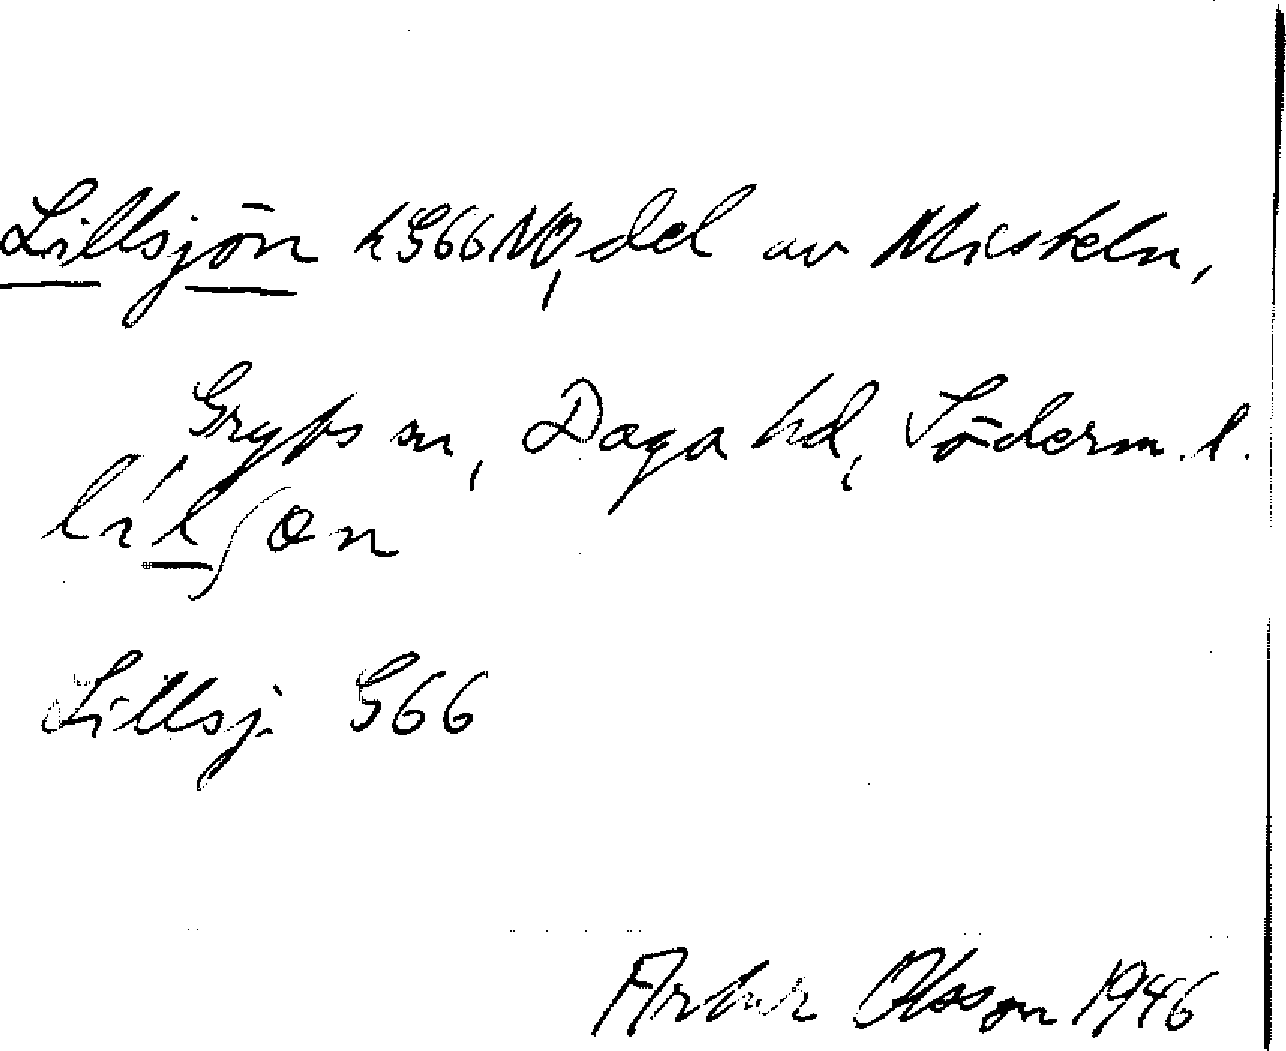 Lillsjön k G66 NO, del av Misteln,
Gryts sn, Daga hd, Söderm. l.
lílʃøn
Lillsj. G66
Arthur Olsson 1946